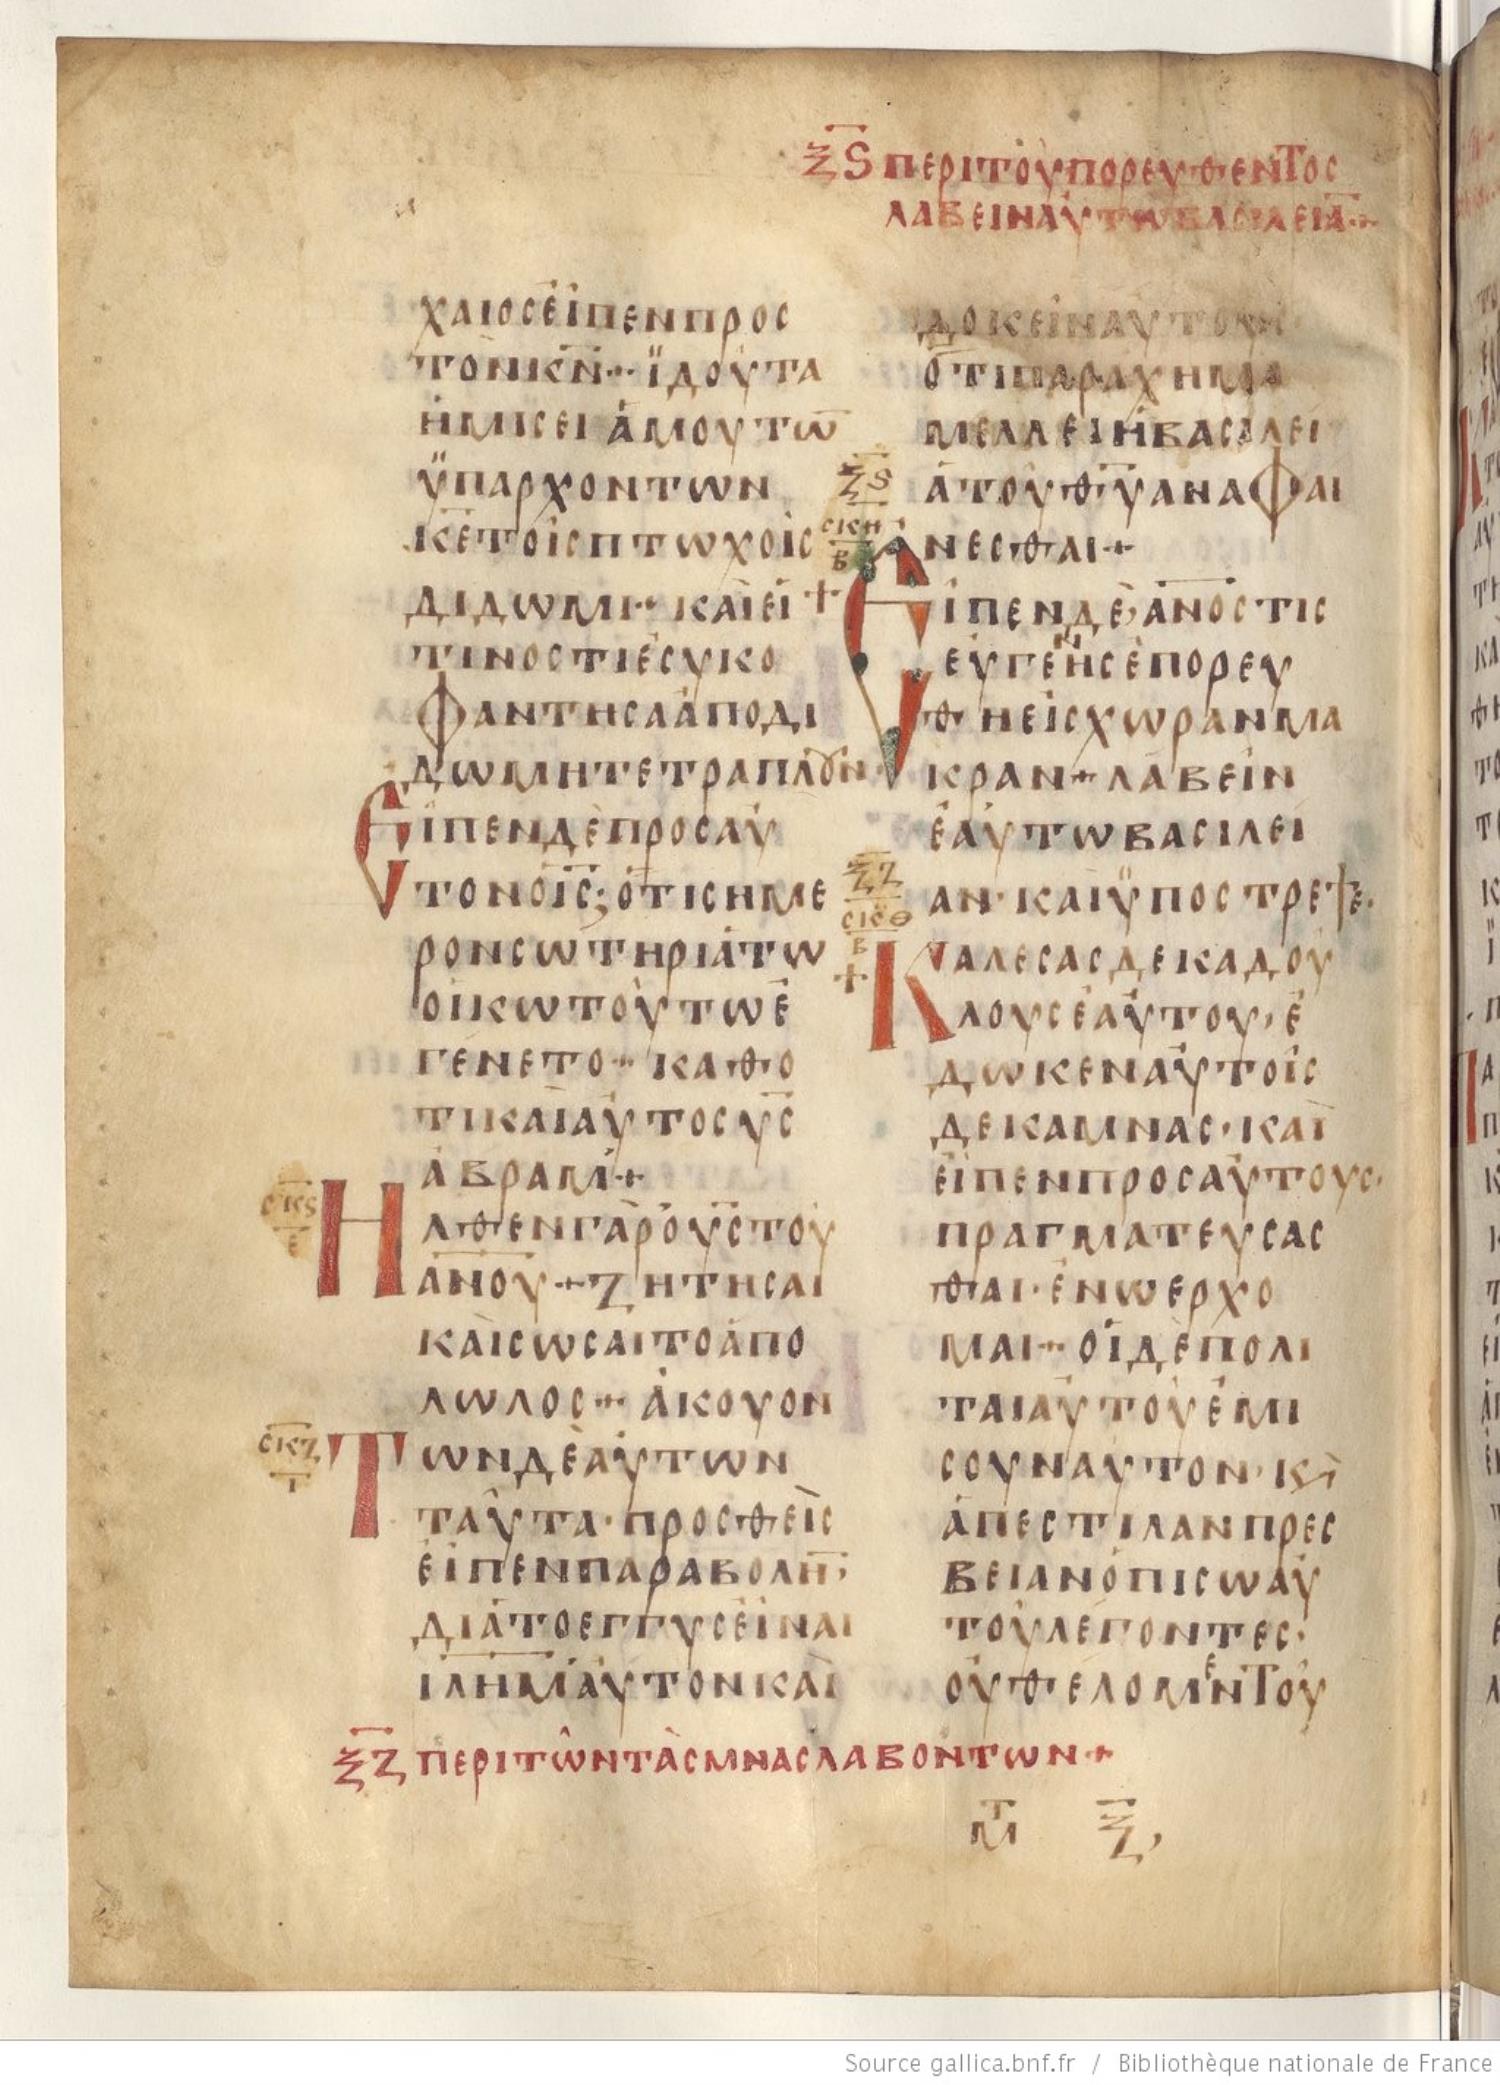 ξϛ περιτουπορευθεντος
λαβειναυτωβασιλεια
χαιοσειπενπρος
τονκν ϊδουτα
ημισειαμουτω
ϋπαρχοντων
κετοιςπτωχοις
διδωμι καιει
τινοστιεσυκο
φαντησααποδι
δωμητετραπλουν
ειπενδεπροσαυ
τονοις οτισημε
ρονσωτηριατω
οικωτουτωε
γενετο καθο
τικαιαυτοσυς
αβρααμ
σκϛ
ε
Ηλθενγαρουςτου
ανου ζητησαι
καισωσαιτοαπο
λωλος ακουον
σκζ
Τωνδεαυτων
ταυτα· προσθεις
ειπενπαραβολην
διατοεγγυσειναι
ιλημαυτονκαι
δοκειναυτους
οτιπαραχρημα
μελλειηβασιλει
ξϛ
ατουθυαναφαι
σκη
β
νεσθαι
Ειπενδε ανοςτις
ευγενησεπορευ
θηεισχωρανμα
κραν λαβειν
εαυτωβασιλει
ξζ
αν· καιϋποστρεψε·
σκθ
β
Καλεσασδεκαδου
λουσεαυτου, ε
δωκεναυτοις
δεκαμνας· και
ειπενπροσαυτους·
πραγματευσας
θαι· ενωερχο
μαι οιδεπολι
ταιαυτουεμι
σουναυτον· κϗ
απεστιλανπρες
βειανοπισωαυ
τουλεγοντες·
ουθελομεντου
ξζ περιτωντασμναςλαβοντων
μτ ξζ